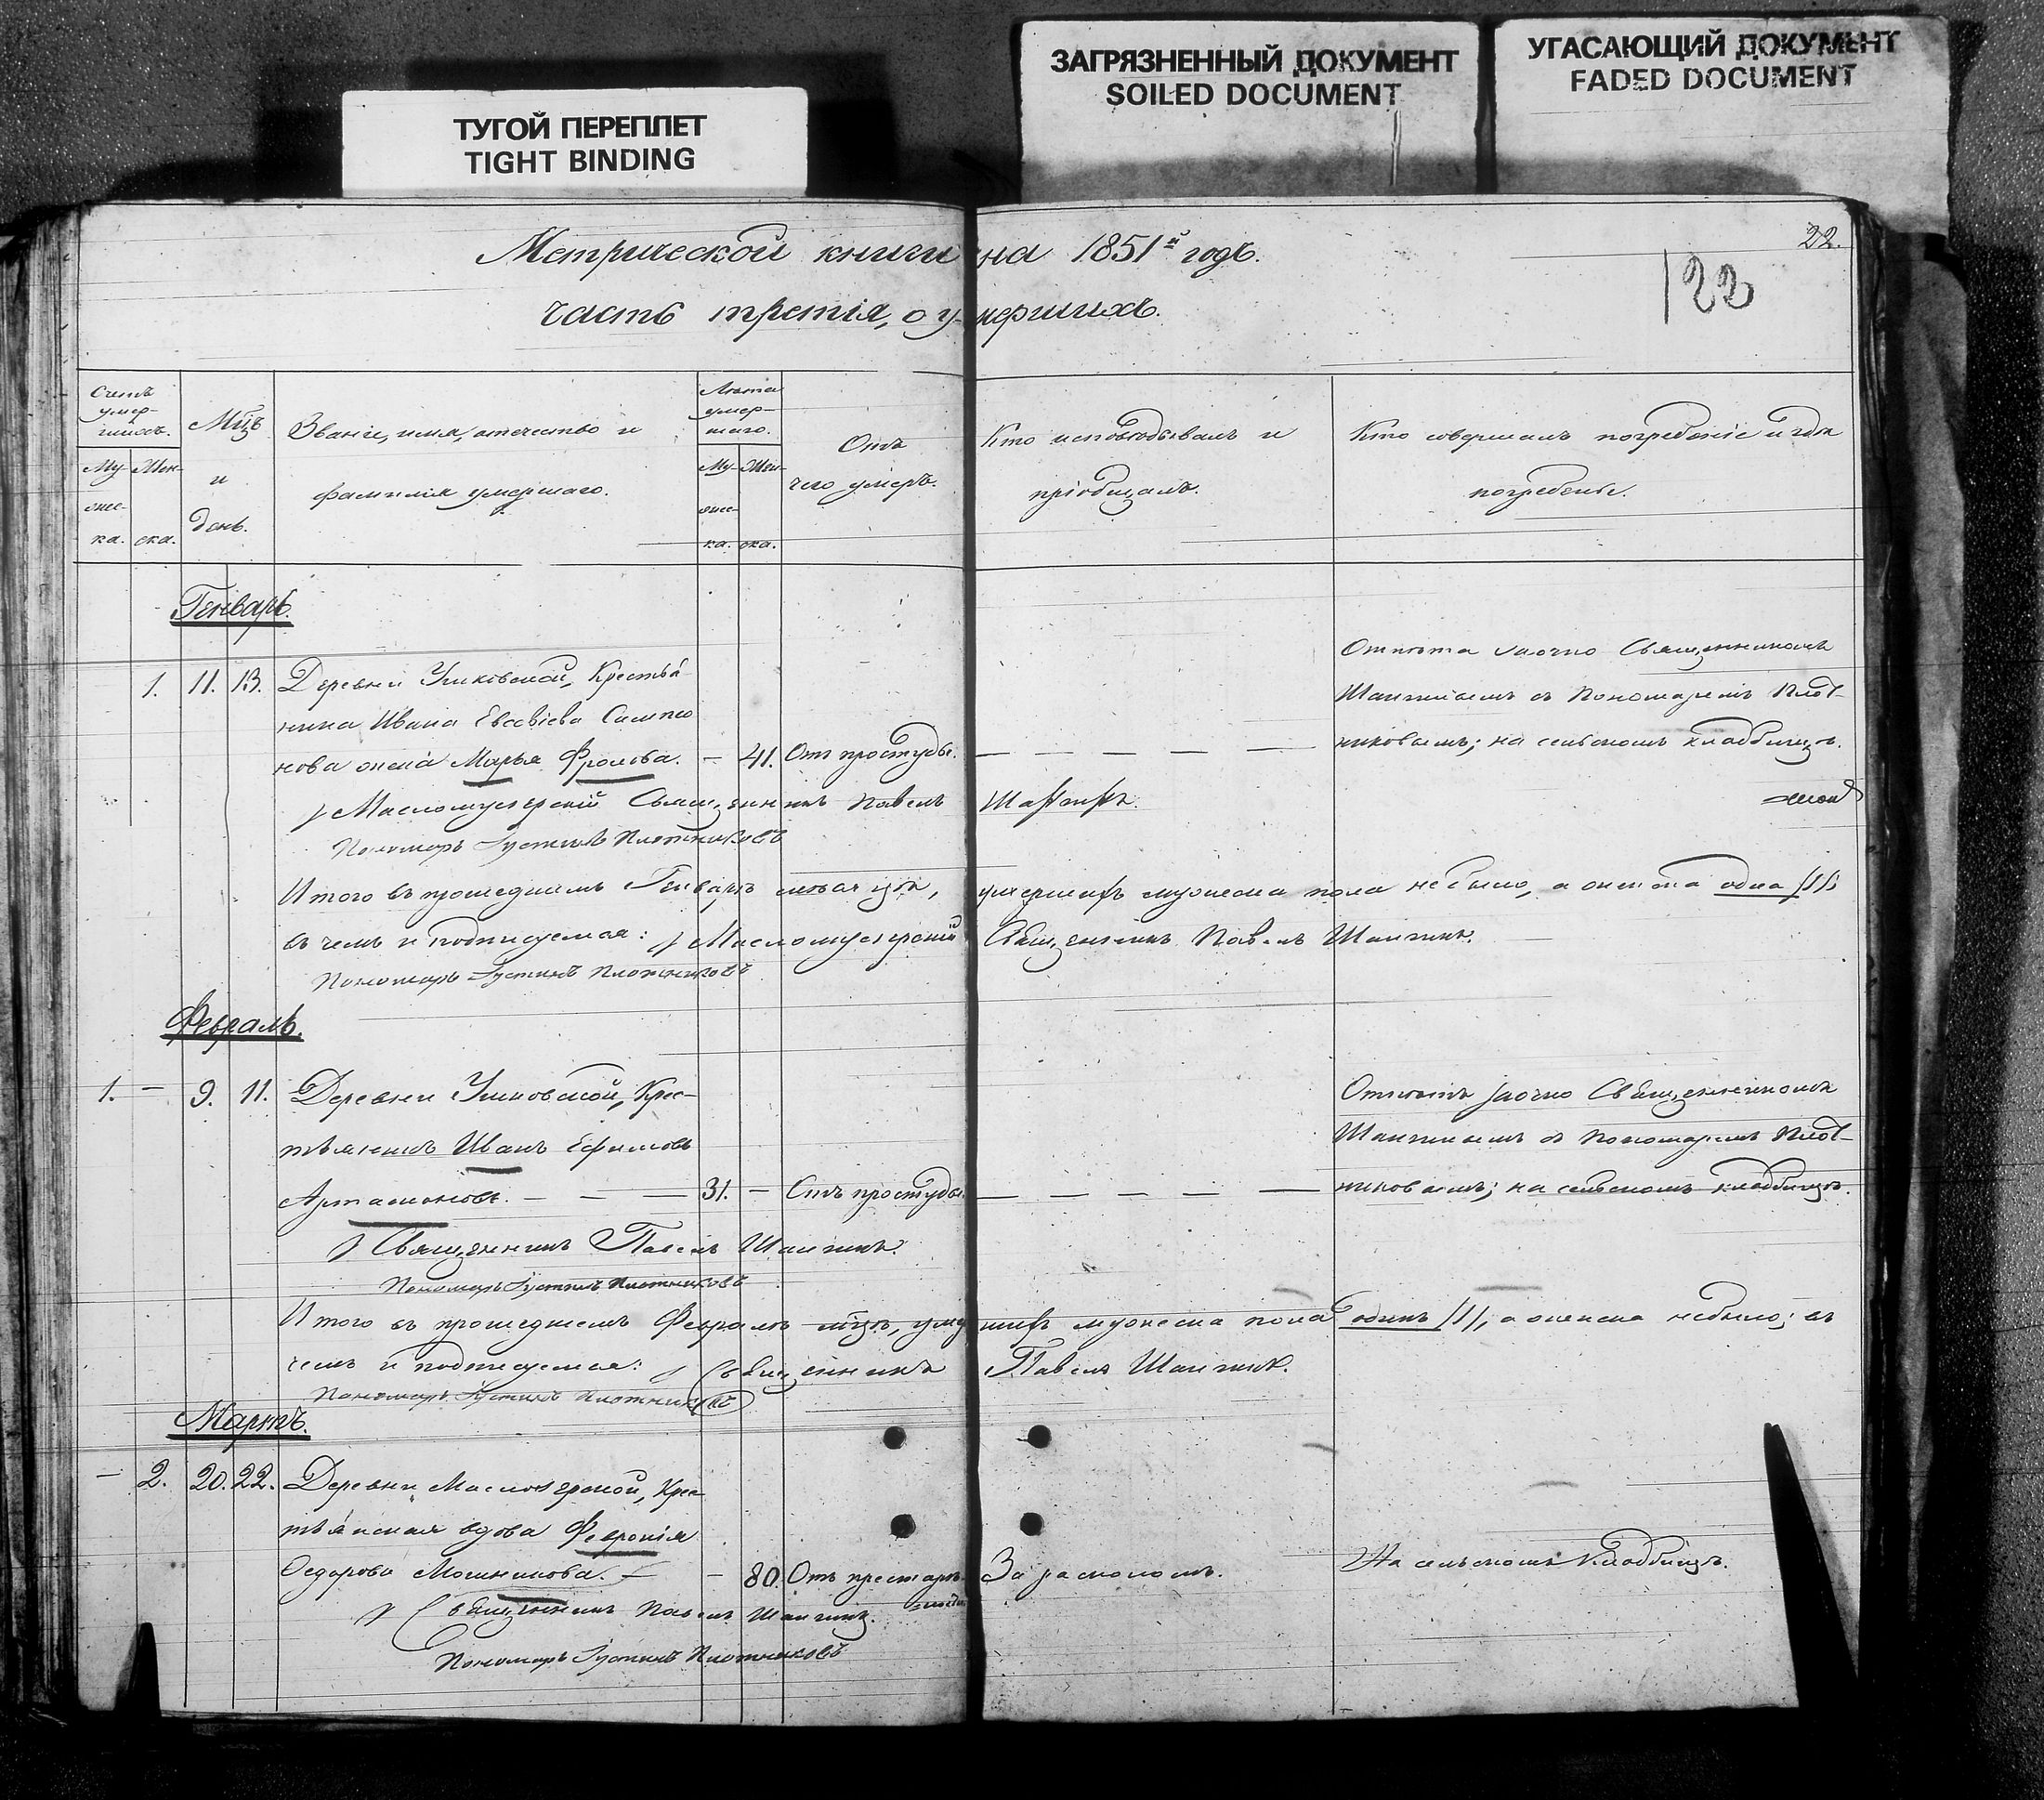 ТУГОЙ ПЕРЕПЛЕТ
TIGHT BINDING
ЗАГРЯЗНЕННЫЙ ДОКУМЕНТ
SOILED DOCUMENT
УГАСАЮЩИЙ ДОКУМЕНТ
FADED DOCUMENT
22.
122
Метрической книги на 1851й годъ.
часть третія, о умершихъ.
Счетъ умер-шихъ.
Му-жес-ка. Жен-ска.
Мцъ и день.
Званіе, имя, отечество и фамилія умершаго.
Лѣта умер-шаго.
Му-жес-ка. Жен-ска.
Отъ чего умеръ.
Кто исповѣдывалъ и пріобщалъ.
Кто совершалъ погребеніе и гдѣ погребены.
Генварь.
1. 11. 13. Деревни Ушковской, Крестья-
нина Ивана Евсевіева
нова жена Марья Фролова. — 41. Отъ простуды. — — — — —
Отпѣта заочно Священникомъ
Шангинымъ съ Пономаремъ Плот-
никовымъ; на сельскомъ кладбищѣ.
Масломуезерскій Священникъ Павелъ
Пономарь Іустинъ Плотниковъ
Итого въ прошедшемъ Генварѣ мѣсяцѣ, умершихъ мужеска пола небыло, а женска одна /1/;
въ чемъ и подписуемся: Масломуезерскій Священникъ Павелъ Шангинъ.
Пономарь Іустинъ Плотниковъ
Февраль.
1. — 9. 11. Деревни Ушковской, Крес-
тьянинъ Иванъ Ефимовъ
Артамоновъ. — — — 31. — Отъ простуды. — — — — —
Отпѣтъ заочно Священникомъ
Шангинымъ съ Пономаремъ Плот-
никовымъ; на сельскомъ кладбищѣ.
Священникъ Павелъ Шангинъ.
Пономарь Іустинъ Плотниковъ
Итого въ прошедшемъ Февралѣ мцѣ, умершихъ мужеска пола одинъ /1/, а женска небыло; въ
чемъ и подписуемся: Священникъ Павелъ Шангинъ.
Пономарь Іустинъ Плотниковъ
Мартъ.
— 2. 20. 22. Деревни Маслозерской, Крес-
тьянская вдова Февронія
Ѳедорова Мошникова. — — 80. Отъ престарѣ-
лости
За расколомъ.
На сельскомъ Кладбищѣ.
Священникъ Павелъ Шангинъ.
Пономарь Іустинъ Плотниковъ